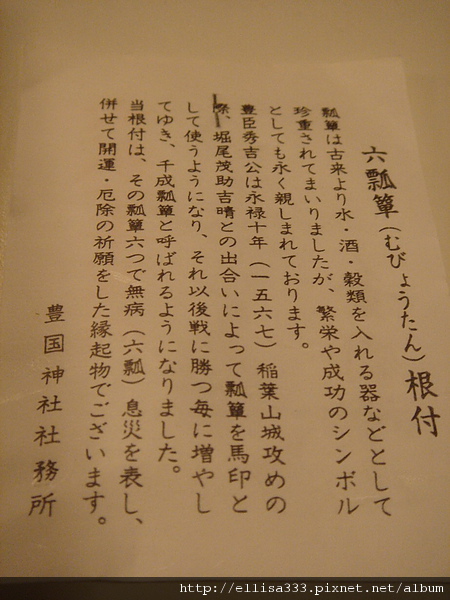 六瓢箪(むびょうたん)根付
瓢箪は古来より水・酒・穀類を入れる器などとして
珍重されてまいりましたが、繁栄や成功のシンボル
としても永く親しまれております。
豊臣秀吉公は永禄十年(一五六七)稲葉山城攻めの
際、堀尾茂助吉晴との出合いによって瓢箪を馬印と
して使うようになり、それ以後戦に勝つ毎に増やし
てゆき、千成瓢箪と呼ばれるようになりました。
当根付は、その瓢箪六つで無病(六瓢)息災を表し、
併せて開運・厄除の祈願をした縁起物でございます。
豊国神社社務所
http://ellisa333.pixnet.net/album